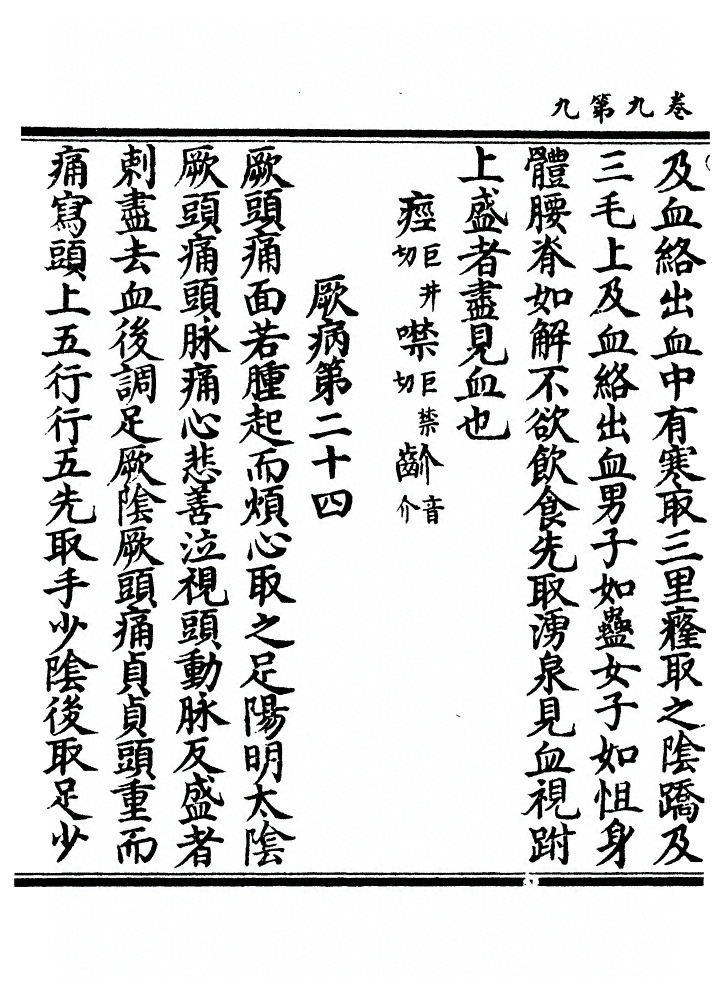 卷九第九
及血絡出血中有寒取三里癃取之陰蹻及
三毛上及血絡出血男子如蠱女子如怚身
體腰脊如解不欲飲食先取湧泉見血視跗
上盛者盡見血也
痓巨井切噤巨禁切齘音介
厥病第二十四
厥頭痛面若腫起而煩心取之足陽明太陰
厥頭痛頭脉痛心悲善泣視頭動脉反盛者
刺盡去血後調足厥陰厥頭痛貞貞頭重而
痛寫頭上五行行五先取手少陰後取足少